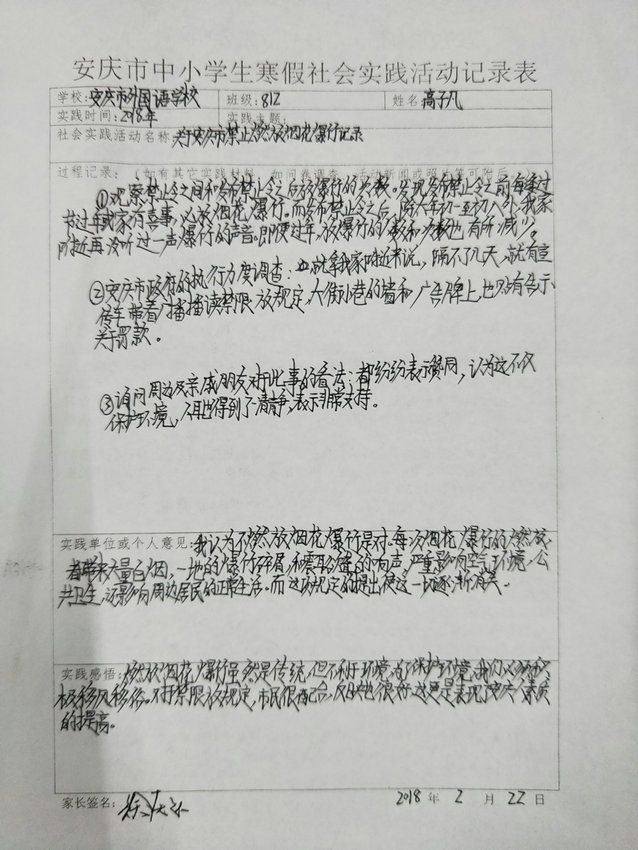 安庆市中小学生寒假社会实践活动记录表
学校:安庆市外国语学校 班级:812 姓名:高子凡
实践时间:2018年 实践主题:
社会实践活动名称:关于安庆市禁止燃放烟花爆竹记录
过程记录:(如有其它实践材料,如问卷调查、活动新闻或照片等可附后
①观察禁止令之间和发布禁止令之后放爆竹的次数。发现发布禁止令之前每逢过
节过年或家有喜事,必放烟花爆竹。而发布禁止令之后,除大年初一至初八外,我家
附近再没听过一声爆竹的声音。即便过年,放爆竹的人数和次数也有所减少。
②安庆市政府的执行力度调查:就拿我家附近来说,隔不了几天,就有宣
传车带着广播播读禁限放规定,大街小巷的墙和广告牌上,也贴有告示
关于罚款。
③询问周边及亲戚朋友对此事的看法:都纷纷表示赞同,认为这不仅
保护环境,而且也得到了清静,表示非常支持。
实践单位或个人意见:我认为不燃放烟花爆竹是对,每次烟花爆竹的燃放
都带来大量白烟,一地的爆竹碎屑和震耳欲聋的响声,严重影响空气环境,公
共卫生,还影响周边居民的正常生活。而这功规定的提出使这一切逐渐消失。
实践感悟:燃放烟花爆竹虽然是传统,但不利于环境,为了保护环境,我们必须积
极移风移俗。对于禁限放规定,市民很配合,反响也很好,这更是表现了安庆人素质
的提高。
家长签名: 2018 年 2 月 22 日